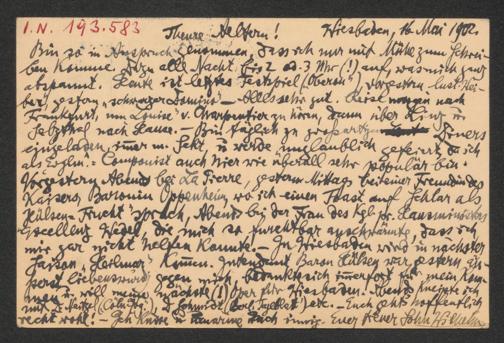 I.N. 193.583
Theure Aeltern! Wiesbaden, 16 Mai 1902.
Bin so in Anspruch genommen, dass ich nur mit Mühe zum Schrei-
ben komme. Bin alle Nacht bis 2 a. 3 Uhr (!) auf, was mich ganz
abspannt. Heute ist letztes Festspiel (Oberon), vorgestern "Lust. Wei-
ber", gestern "schwarzer Domino" – Alles sehr gut. Reise morgen nach
Frankfurt, um "Louise" v. Charpentier zu hören, dann über
nach Hause. – Bin täglich zu grossartigen Diners
eingeladen, immer m. Sekt, u. werde unglaublich gefeiert, da ich
als Componist auch hier wie überall sehr populär bin.
Vorgestern Abend bei La Pierre, gestern Mittag bei einer Freundin des
Kaisers, Baronin Oppenheim, wo ich einen Toast auf
Hülsen sprach, Abend bei der Frau des kgl. pr. Hausministers
Excellenz Wedel, die mich so furchtbar anschwärmte, dass ich
mir gar nicht helfen konnte. – In Wiesbaden wird in nächster
Saison, "Heilmar" kommen. Intendant Baron Hülsen war gestern
liebenswürdig gegen mich, bedankte sich immerfort für mein Kom-
men u. will meine nächste (!) Oper für Wiesbaden. Abend
mit etc. – Euch geht's hoffentlich
recht wohl! – Ich küsse u. umarme Euch innig. Euer treuer Sohn Wilhelm